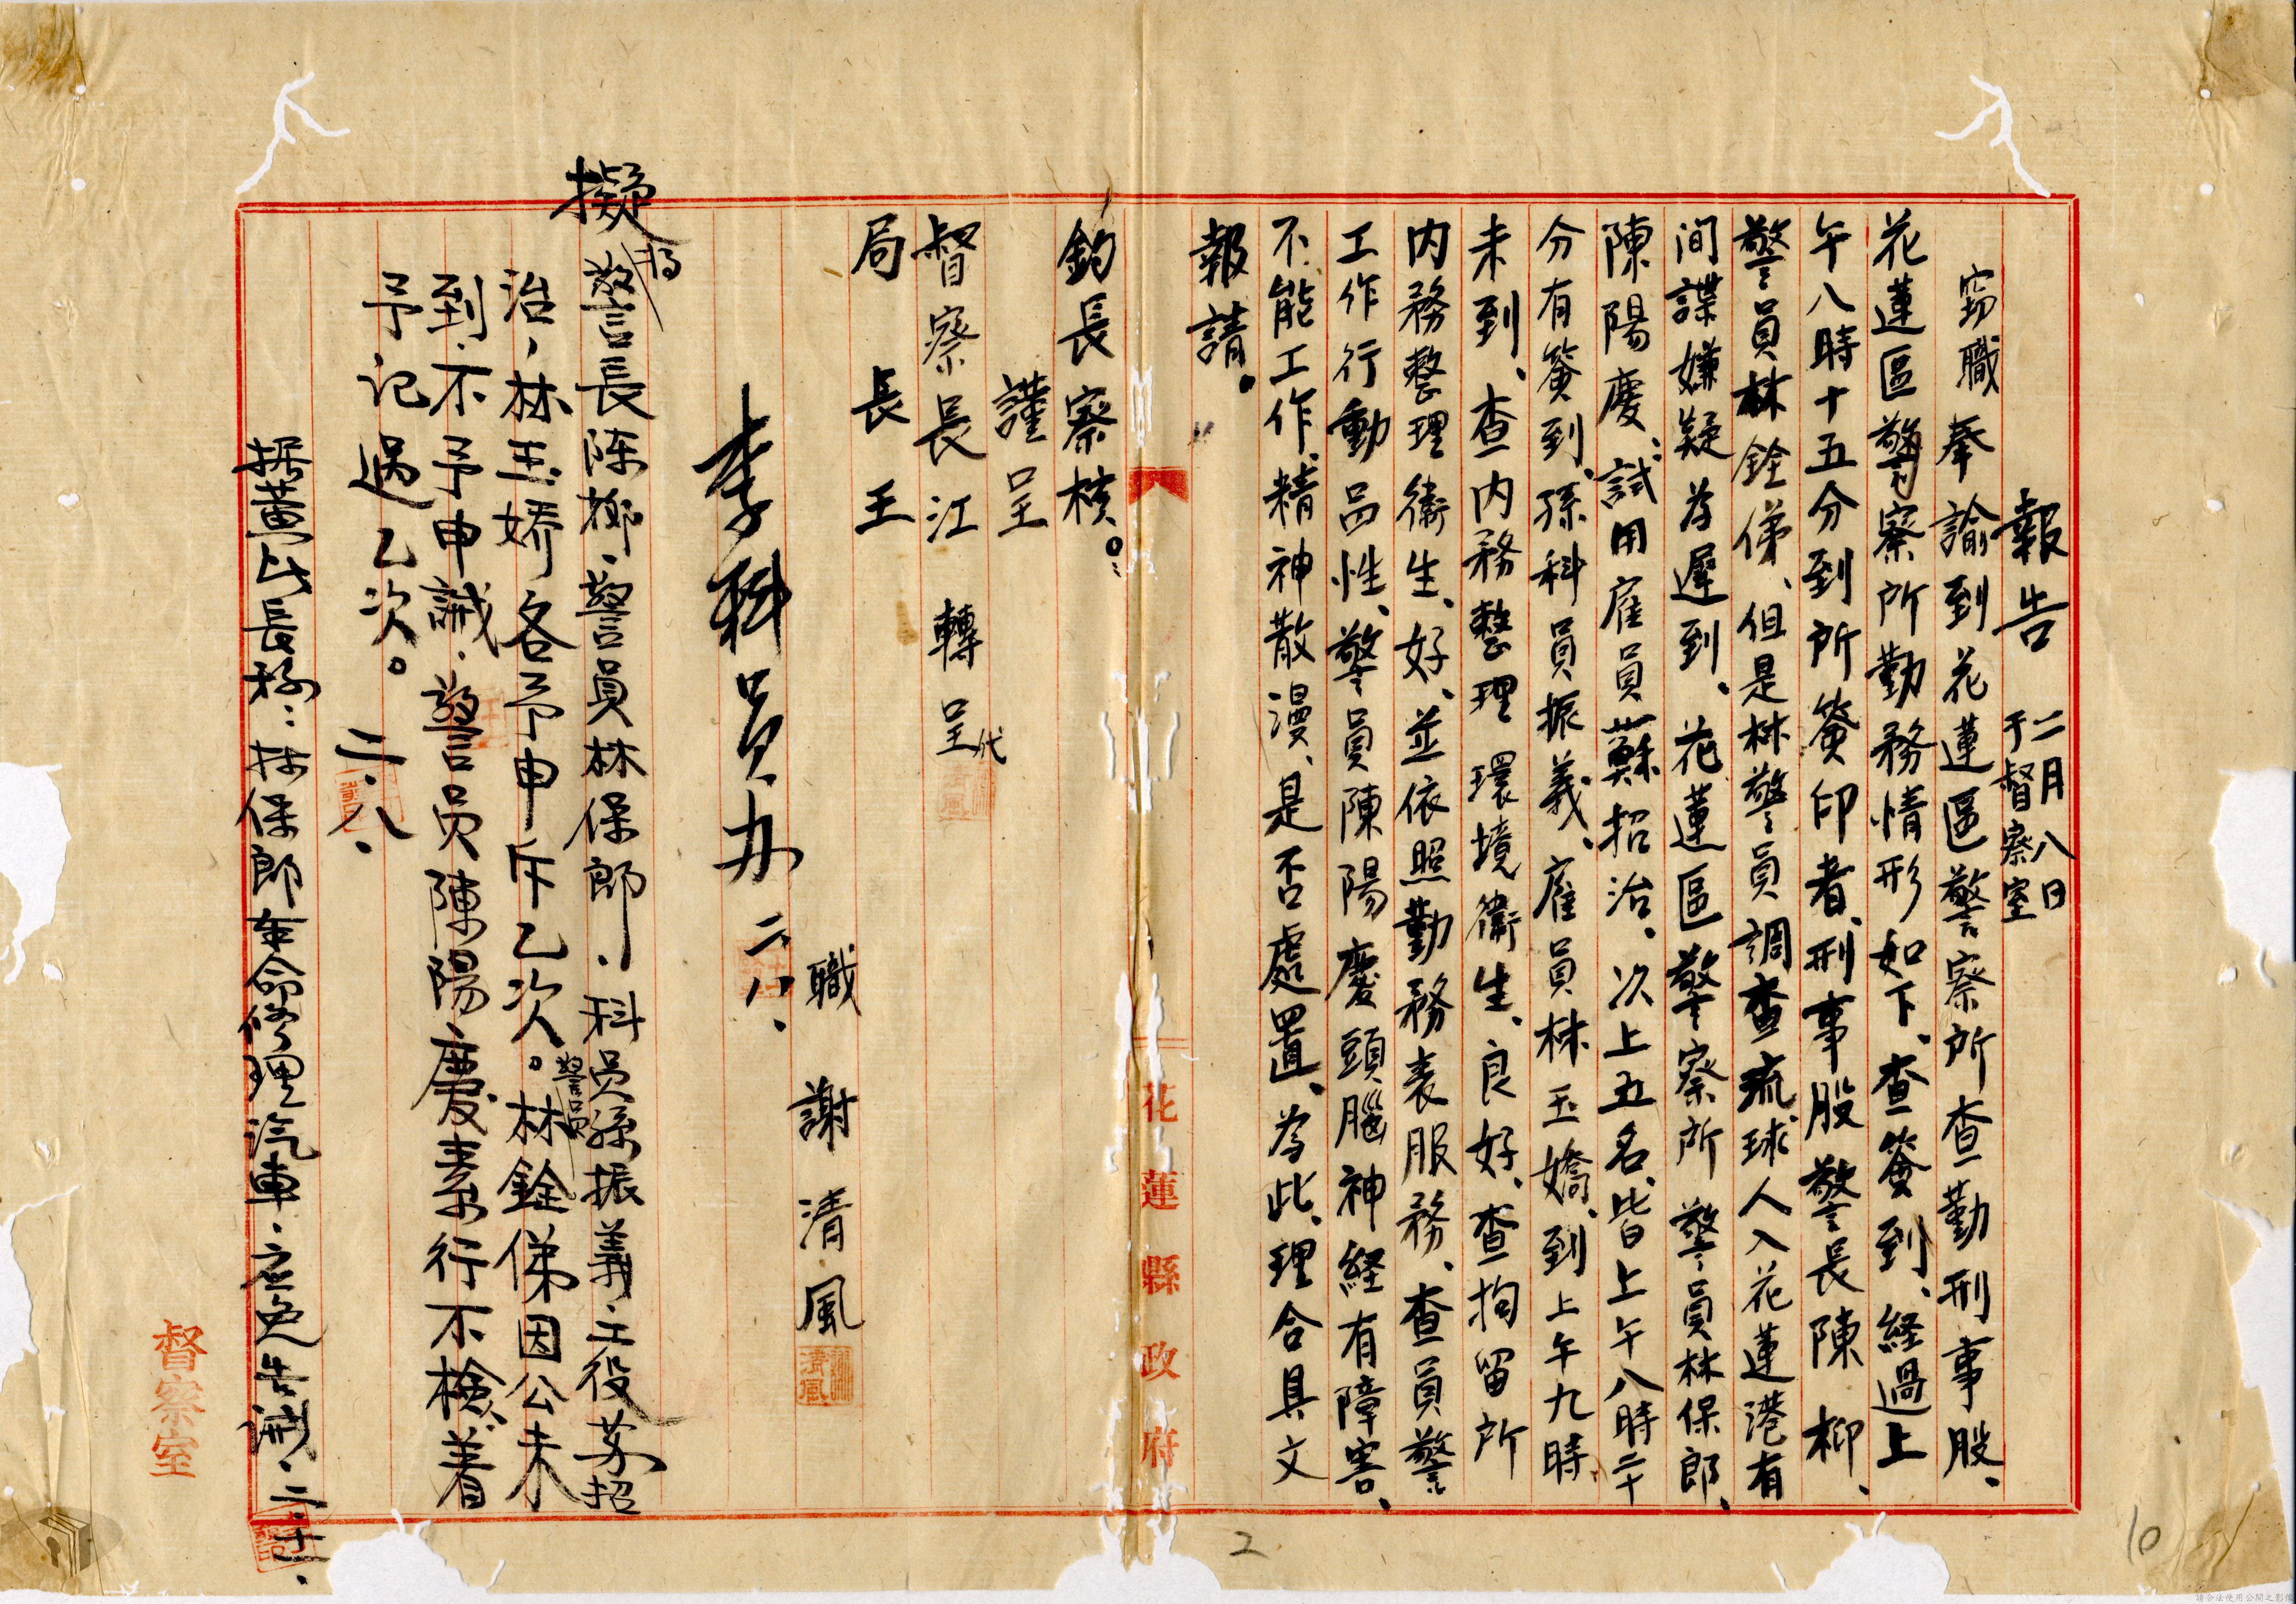 報告 二月八日
于督察室
竊職奉諭到花蓮區警察所查勤刑事股、
花蓮區警察所勤務情形如下、查簽到、経過上
午八時十五分到所簽印者、刑事股警長陳柳、
警員林銓俤、但是林警員調查琉球人入花蓮港有
间諜嫌疑為遲到、花蓮區警察所警員林保郎、
陳陽慶、試用雇員蘇招治、次上五名皆上午八時二十
分有簽到、孫科員振義、雇員林玉嬌、到上午九時
未到、查内務整理環境衛生、良好、查拘留所
内務整理衛生、好、並依照勤務表服務、查員警
工作行動品性、警員陳陽慶頭腦神経有障害、
不能工作、精神散漫、是否處置、為此、理合具文
報請。
鈞長察核。
謹呈
督察長江 轉呈
代
局長王
職 謝清風
李科员办 二.八.
擬
警言長陈柳.警員林保郎.科员孫振義.工役苏招
治,林玉娇各予申斥乙次。警員林銓俤因公未
到.不予申誡.警言员陳陽慶素行不檢、着
予记過乙次。
二.八.
据董比長称:林保郎奉命修理汽車.应免告誡.二.十一.
花蓮縣政府
督察室
清風
2
10
請合法使用公開之影像